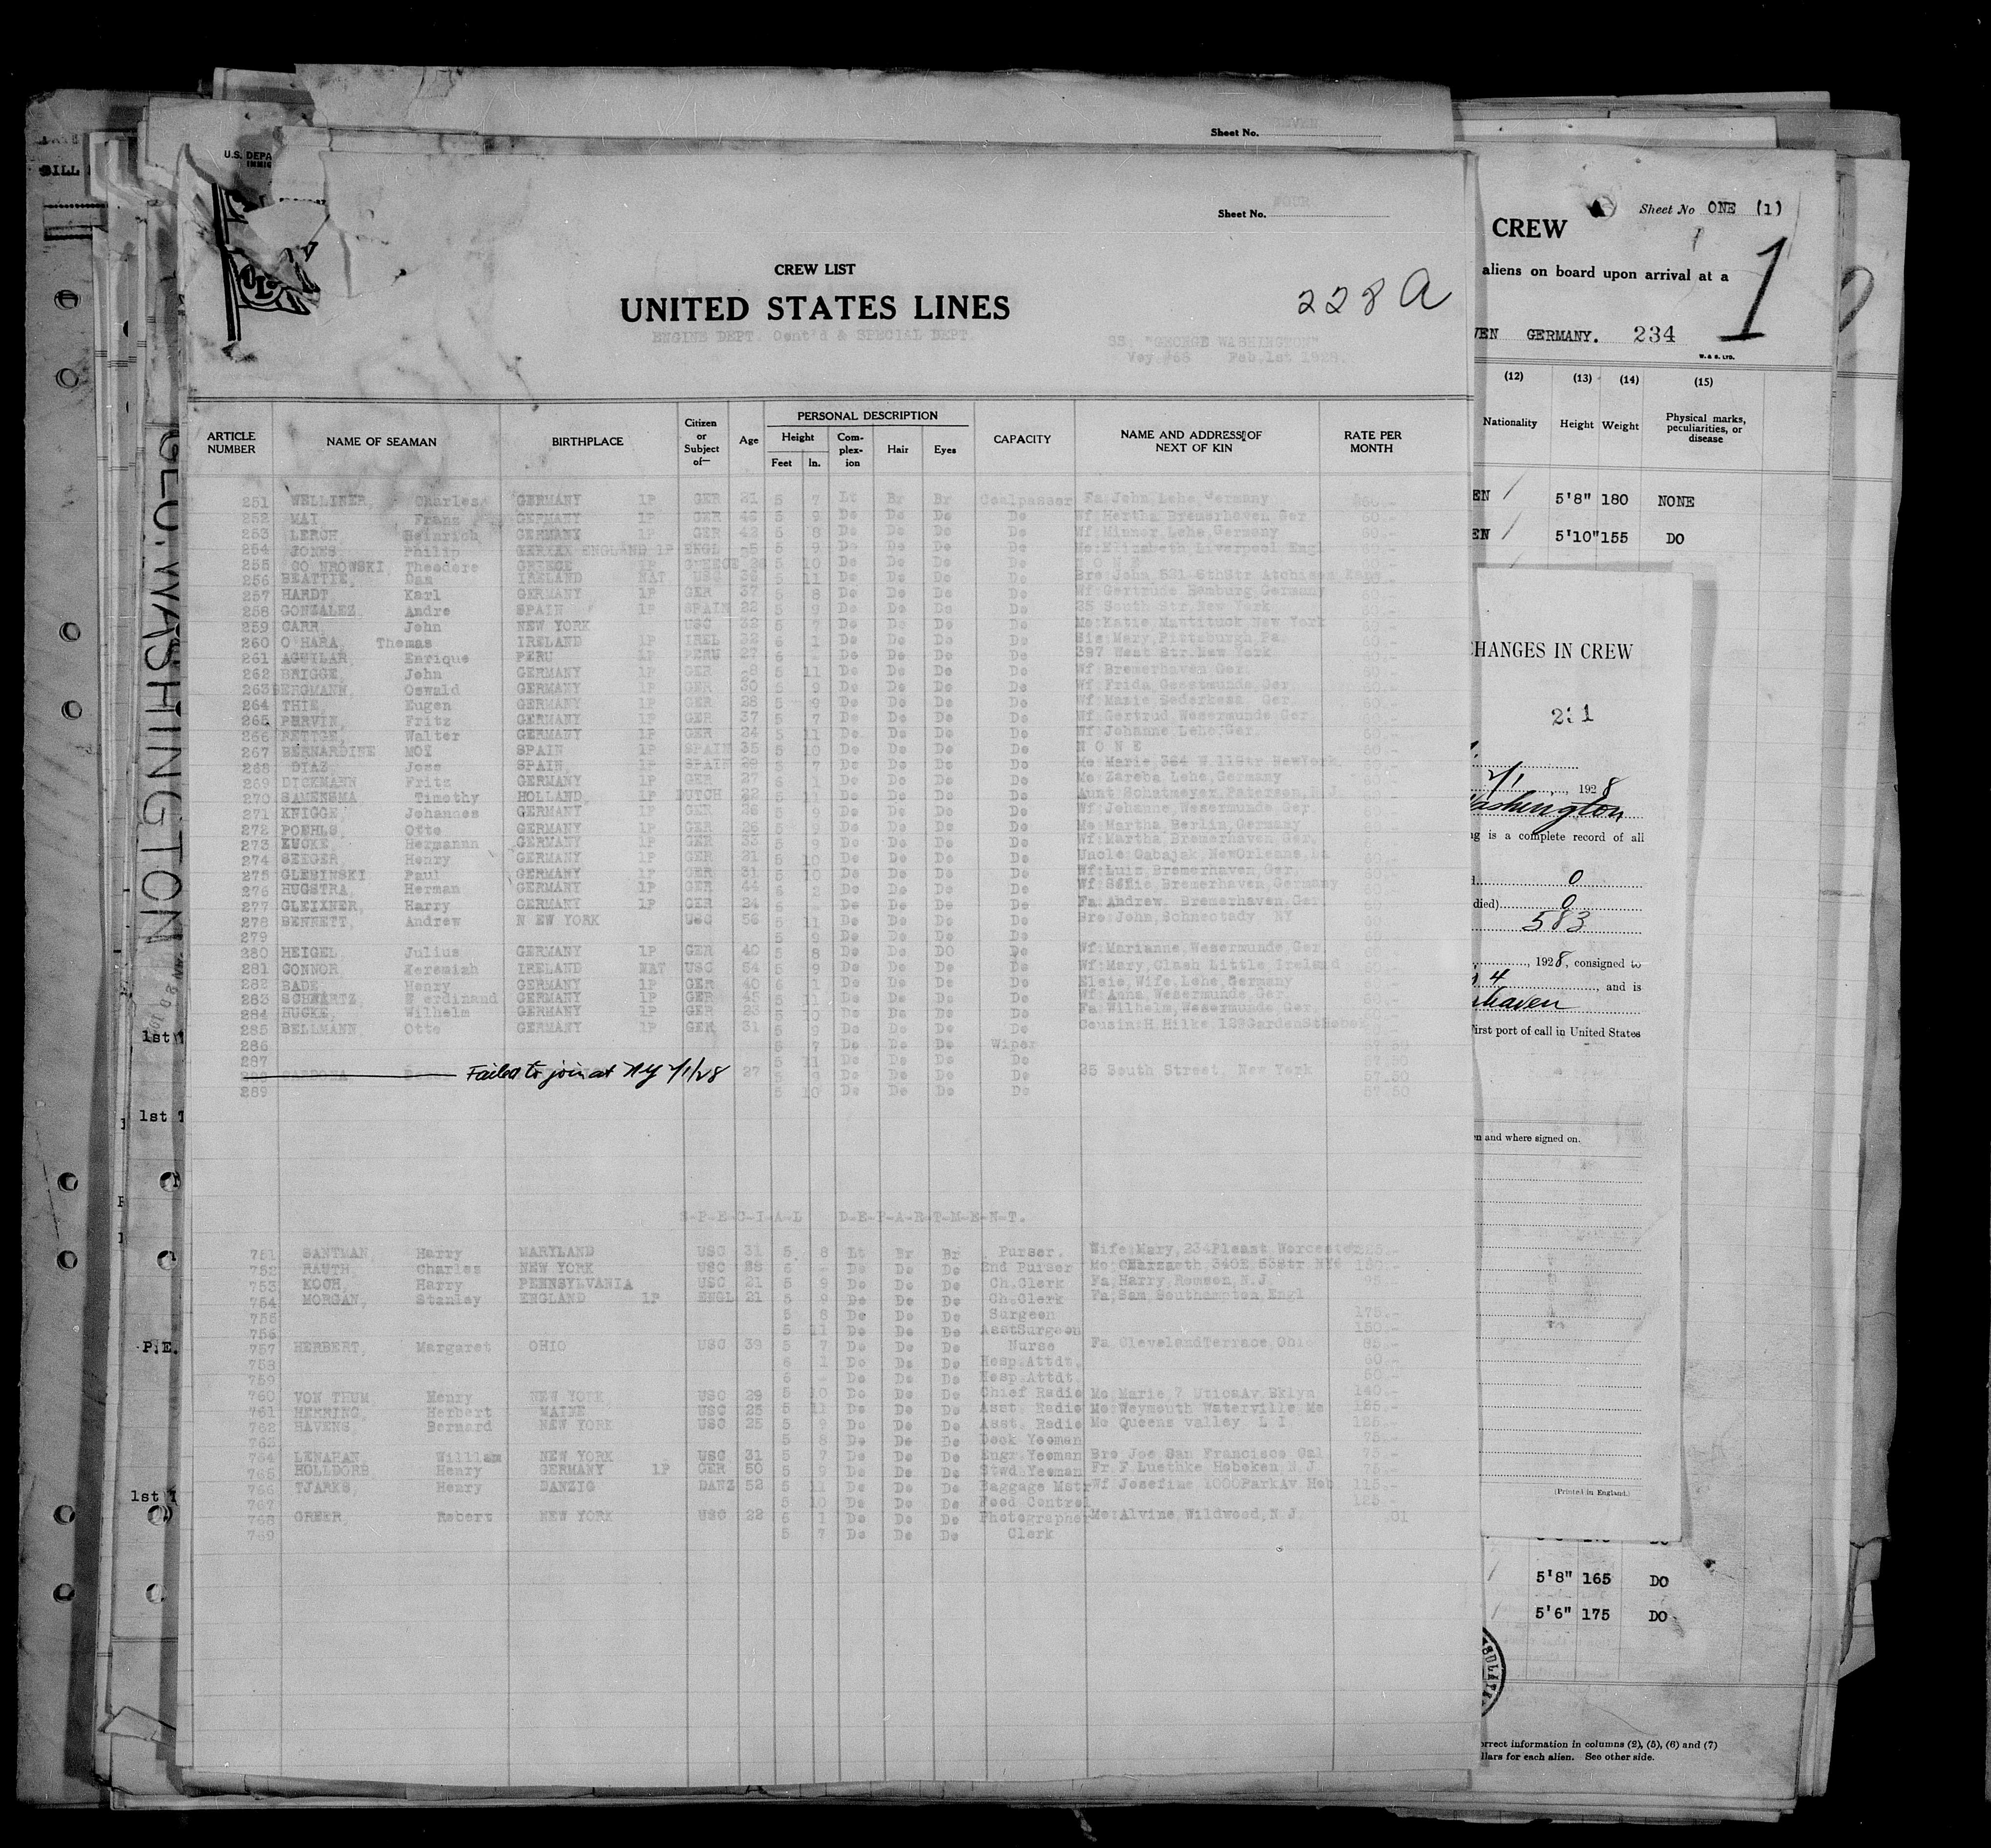 Sheet No. SEVEN
U.S. DEPA
Sheet No. FOUR
CREW LIST
UNITED STATES LINES
228 A
ENGINE DEPT. Cont'd & SPECIAL DEPT.
SS. "GEORGE WASHINGTON"
Voy.#66 Feb.1st 1928.
PERSONAL DESCRIPTION
ARTICLE NUMBER NAME OF SEAMAN BIRTHPLACE Citizen or Subject of— Age Height Feet In. Com-plex-ion Hair Eyes CAPACITY NAME AND ADDRESS OF NEXT OF KIN RATE PER MONTH
251 WELLINER, Charles GERMANY 1P GER 21 5 7 Lt Br Br Coalpasser Fa John, Lehe, Germany $60.-
252 MAI, Franz GERMANY 1P GER 46 5 9 Do Do Do Do Wf Hertha Bremerhaven Ger 60.-
253 LERCH, Heinrich GERMANY 1P GER 42 5 8 Do Do Do Do Wf Minner Lehe, Germany 60.-
254 JONES, Philip ENGLAND 1P ENGL 5 9 Do Do Do Do Mo:Elizabeth Liverpool Engl 60.-
255 Theodore GREECE 1P GREECE 26 5 10 Do Do Do Do NONE
256 BEATTIE, Dan IRELAND NAT USC 35 5 11 Do Do Do Do Bro John 531 6thStr Atchison Kan
257 HARDT, Karl GERMANY 1P GER 37 5 8 Do Do Do Do Wf Gertrude Hamburg, Germany 60.-
258 GONZALEZ Andre SPAIN 1P SPAIN 22 5 9 Do Do Do Do 25 South Str, New York 60.-
259 CARR, John NEW YORK USC 32 5 7 Do Do Do Do Mo:Katie, Mattituck, New York 60.-
260 O'HARA, Thomas IRELAND 1P IREL 32 6 1 Do Do Do Do Sis Mary, Pittsburgh, Pa. 60.-
261 AGUILAR, Enrique PERU 1P PERU 27 6 - Do Do Do Do 397 West Str. New York 60.-
262 BRIGGE, John GERMANY 1P GER 5 11 Do Do Do Do Wf Bremerhaven Ger. 60.-
263 BERGMANN, Oswald GERMANY 1P GER 30 5 9 Do Do Do Do Wf Frida, Geestmunde, Ger. 60.-
264 THIE, Eugen GERMANY 1P GER 28 5 9 Do Do Do Do Wf Marie Bederkesa Ger. 60.-
265 PERVIN, Fritz GERMANY 1P GER 37 5 7 Do Do Do Do Wf Gertrud, Wesermunde Ger 60.-
266 RETTGE, Walter GERMANY 1P GER 24 5 11 Do Do Do Do Wf Johanne Lehe, Ger. 60.-
267 BERNARDINE MOY SPAIN 1P SPAIN 35 5 10 Do Do Do Do NONE 60.-
268 DIAZ, Jose SPAIN, 1P SPAIN 29 5 7 Do Do Do Do Mo Marie, 364 W 11Str NewYork
269 DICKMANN Fritz GERMANY 1P GER 27 6 1 Do Do Do Do Mo Zareba Lehe, Germany 60.-
270 SAMENSMA Timothy HOLLAND, 1P DUTCH 22 5 11 Do Do Do Do Aunt Paterson, N J
271 KNIGGE, Johannes GERMANY 1P GER 36 5 9 Do Do Do Do Wf Johanne, Wesermunde, Ger.
272 POEHLS, Otto GERMANY 1P GER 26 5 9 Do Do Do Do Mo Martha, Berlin, Germany
273 KUCKE, Hermannn GERMANY 1P GER 33 5 9 Do Do Do Do Wf:Martha Bremerhaven Ger.
274 SEEGER, Henry GERMANY 1P GER 21 5 10 Do Do Do Do Uncle Gabajak, NewOrleans, La
275 GLEBINSKI Paul GERMANY 1P GER 31 5 10 Do Do Do Do Wf:Luis Bremerhaven, Ger.
276 HUGSTRA, Herman GERMANY 1P GER 44 6 2 Do Do Do Do Wf Bremerhaven, Germany
277 GLEIXNER, Harry GERMANY 1P GER 24 6 - Do Do Do Do Fa:Andrew, Bremerhaven Ger.
278 BENNETT, Andrew N EW YORK USC 56 5 11 Do Do Do Do Bro:John, Schnectady, NY
279 5 9 Do Do Do Do
280 HEIGEL Julius GERMANY 1P GER 40 5 8 Do Do DO Do Wf:Marianne, Wesermunde, Ger.
281 CONNOR, Jeremiah IRELAND NAT USC 54 5 9 Do Do Do Do Wf:Mary, Clash Little Ireland
282 BADE, Henry GERMANY 1P GER 40 6 1 Do Do Do Do Elsie, Wife, Lehe, Germany
283 SCHWARTZ, F erdinand GERMANY 1P GER 45 5 11 Do Do Do Do Wf Anna, Wesermunde, Ger.
284 HUCKE, Wilhelm GERMANY 1P GER 23 5 10 Do Do Do Do Fa:Wilhelm, Wesermunde Ger,
285 BELLMANN, Otto GERMANY 1P GER 31 5 9 Do Do Do Do Cousin:H Hilke, 129GardenStHobok
286 5 7 Do Do Do Wiper 57.50
297 5 11 Do Do Do Do 57.50
Failed to join at NY 2/1/28 27 5 9 Do Do Do Do 25 South Street, New York 57.50
289 5 10 Do Do Do Do 57.50
S-P-E-C-I-A-L D-E-P-A-R-T-M-E-N-T.
751 SANTMAN, Harry MARYLAND USC 31 5 8 Lt Br Br Purser. Wife Mary, 234Pleast Worcester
752 RAUTH, Charles NEW YORK USC 28 6 - Do Do Do 2nd Purser Mo 340E 53Str NYC 150.-
753 KOCH, Harry PENNSYLVANIA USC 21 5 9 Do Do Do Ch.Clerk Fa Harry, Romson, N.J. 95.-
754 MORGAN, Stanley ENGLAND 1P ENGL 21 5 9 Do Do Do Ch.Clerk Fa, Sam, Southampton Engl
755 5 8 Do Do Do Surgeon 175.-
756 5 11 Do Do Do AsstSurgeon 150.-
757 HERBERT, Margaret OHIO USC 39 5 7 Do Do Do Nurse Fa ClevelandTerrace, Ohio 85.-
758 6 1 Do Do Do Hosp.Attdt. 60.-
759 6 - Do Do Do Hosp Attdt. 50.-
760 VON THUM Henry NEW YORK USC 29 5 10 Do Do Do Chief Radio Mo Marie, 7 UticaAv Bklyn 140.-
761 HERRING, Herbert MAINE USC 25 5 11 Do Do Do Asst. Radio Mo Weymouth Waterville Me 125.-
762 HAVENS, Bernard NEW YORK USC 25 5 9 Do Do Do Asst. Radio Mo Queens valley L I 125.-
763 5 8 Do Do Do Deck Yeoman 75.-
764 LENAHAN, William NEW YORK USC 31 5 7 Do Do Do Engr Yeoman Bro Joe San Francisco Cal 75.-
765 HOLLDORB, Henry GERMANY 1P GER 50 5 9 Do Do Do Stwd Yeoman Fr F Luethke Hoboken N J 75.-
766 TJARKS, Henry DANZIG DANZ 52 5 11 Do Do Do Baggage Mstr Wf Josefine 1000ParkAv Hob 115.-
767 5 10 Do Do Do Food Control 125.-
768 GREER, Robert NEW YORK USC 22 6 1 Do Do Do Photographer Mo:Alvine, Wildwood, N.J. .01
769 5 7 Do Do Do Clerk
GEO. WASHINGTON
BILL
1st
1st T
P.E.
1st T
CREW
Sheet No ONE (1)
aliens on board upon arrival at a
1
VEN GERMANY. 234
W. & S. LTD.
(12) (13) (14) (15)
Nationality Height Weight Physical marks, peculiarities, or disease
EN / 5'8" 180 NONE
EN / 5'10" 155 DO
HANGES IN CREW
2/1, 1928
Washington
ng is a complete record of all
0
died) 0
583
, 1928, consigned to
4, and is
haven
First port of call in United States
en and where signed on.
(Printed in England.)
5'8" 165 DO
5'6" 175 DO
orrect information in columns (2), (5), (6) and (7)
llars for each alien. See other side.